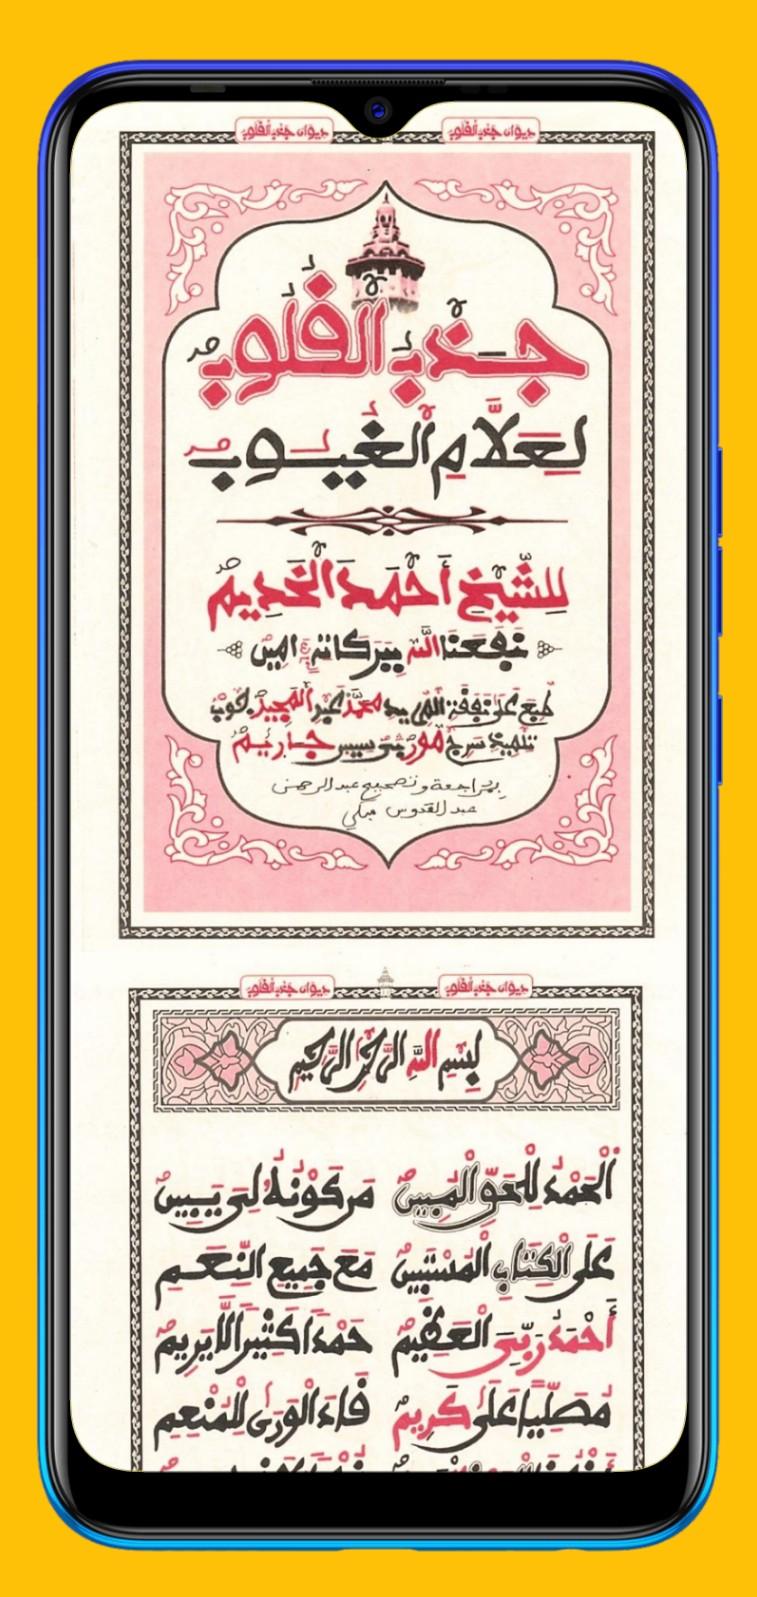 ديوان جذب القلوب ديوان جذب القلوب
جذب القلوب
لعلام الغيوب
للشيخ أحمد الخديم
نفعنا الله ببركاته امين
طبع على نفقة المريد محمد عبد المجيد
تلميذ سرج مور
بمراجعة وتصحيح عبد الرحمن
عبد القدوس مبكي
ديوان جذب القلوب ديوان جذب القلوب
بسم الله الرحمن الرحيم
الحمد للحق المبين من كونه لي يبين
على الكتاب المستبين مع جميع النعم
أحمد ربي العظيم حمدا كثيرا لا يريم
مصليا على كريم قاد الورى للمنعم